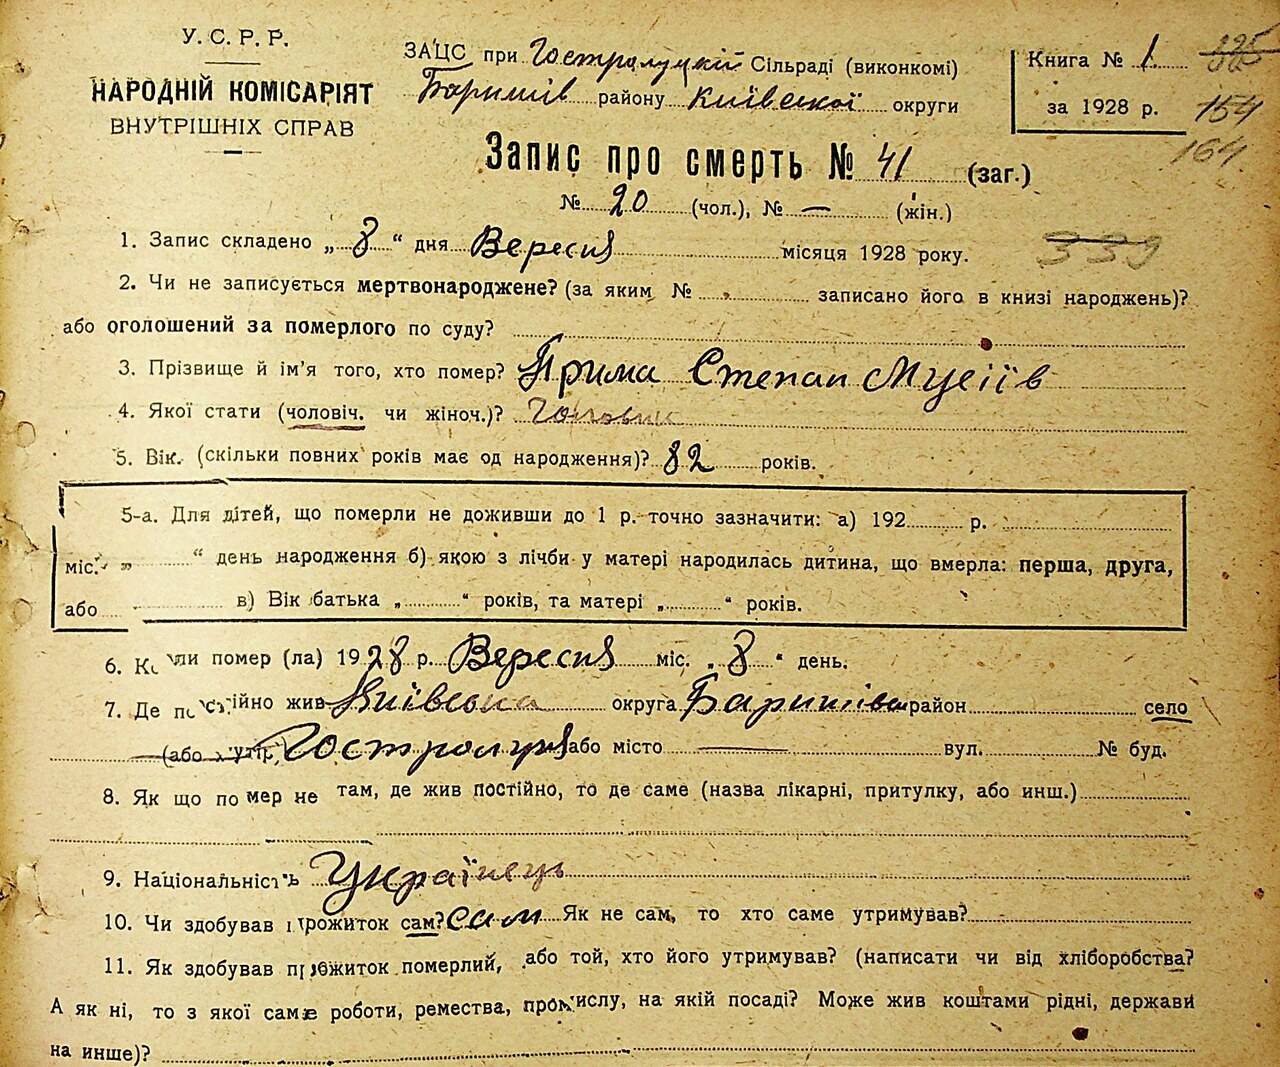 У. С. Р. Р.
НАРОДНІЙ КОМІСАРІЯТ
ВНУТРІШНІХ СПРАВ
ЗАЦС при Гостролуцкій Сільраді (виконкомі)
Баришів району Київської округи
Книга № 1
за 1928 р.
325
154
164
Запис про смерть № 41 (заг.)
№ 20 (чол.), № — (жін.)
1. Запис складено „ 8 “ дня Вересня місяця 1928 року.
339
2. Чи не записується мертвонароджене? (за яким № записано його в книзі народжень)?
або оголошений за померлого по суду?
3. Прізвище й ім'я того, хто помер? Прима Степан Мусіїв
4. Якої стати (чоловіч. чи жіноч.)? Чоловік
5. Вік. (скільки повних років має од народження)? 82 років.
5-а. Для дітей, що померли не доживши до 1 р. точно зазначити: а) 192 р.
міс. „ “ день народження б) якою з лічби у матері народилась дитина, що вмерла: перша, друга,
або в) Вік батька „ “ років, та матері „ “ років.
6. Коли помер (ла) 1928 р. Вересня міс. „ 8 “ день.
7. Де постійно жив Київська округа Баришівськ район село
(або хутір) Гостролуча або місто — вул. № буд.
8. Як що помер не там, де жив постійно, то де саме (назва лікарні, притулку, або инш.)
9. Національність Українець
10. Чи здобував прожиток сам? сам Як не сам, то хто саме утримував?
11. Як здобував прожиток померлий, або той, хто його утримував? (написати чи від хліборобства?
А як ні, то з якої саме роботи, ремества, промислу, на якій посаді? Може жив коштами рідні, держави
на инше)?